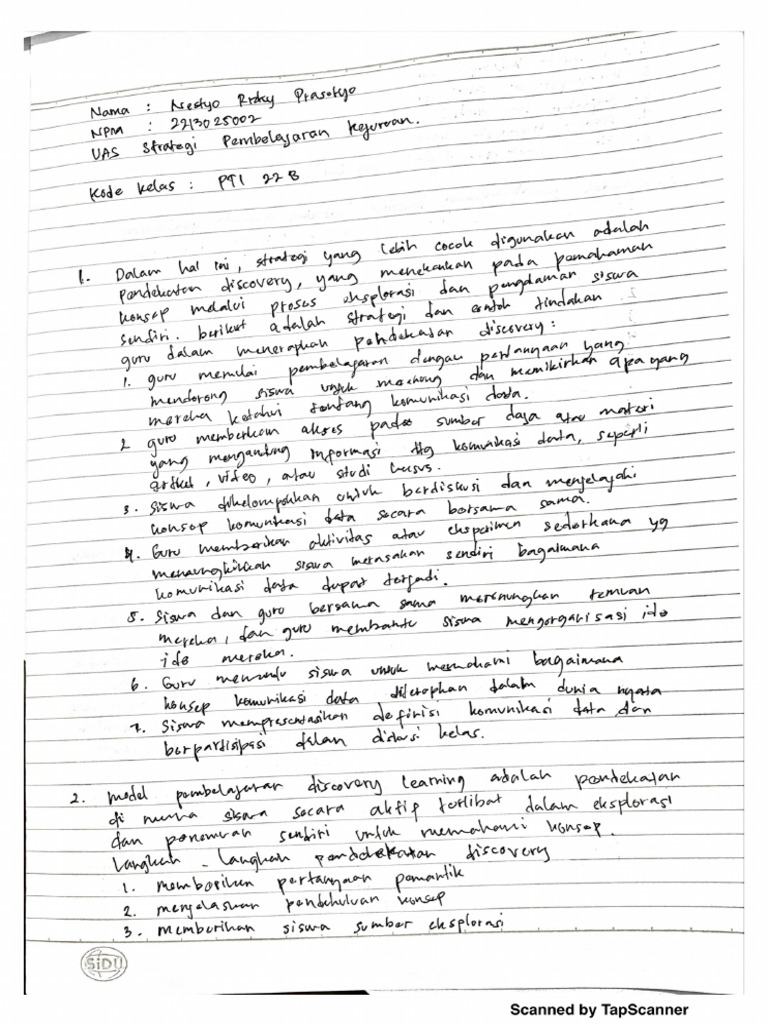 Nama : Nestyo Rizky Prasetyo
NPM : 2213025002
UAS Strategi Pembelajaran Kejuruan.
Kode Kelas : PTI 22 B
1. Dalam hal ini, strategi yang lebih cocok digunakan adalah
pendekatan discovery, yang menekankan pada pemahaman
konsep melalui proses eksplorasi dan pengalaman siswa
sendiri. berikut adalah strategi dan contoh tindakan
guru dalam menerapkan pendekatan discovery:
1. guru memulai pembelajaran dengan pertanyaan yang
mendorong siswa untuk merenung dan memikirkan apa yang
mereka ketahui tentang komunikasi data.
2 guru memberikan akses pada sumber daya atau materi
yang mengandung informasi ttg komunikasi data, seperti
artikel, video, atau studi kasus.
3. Siswa dikelompokkan untuk berdiskusi dan menjelajahi
konsep komunikasi data secara bersama sama.
4. Guru memberikan aktivitas atau eksperimen sederhana yg
memungkinkan siswa merasakan sendiri bagaimana
komunikasi data dapat terjadi.
5. Siswa dan guru bersama sama merenungkan temuan
mereka, dan guru membantu siswa mengorganisasi ide
ide mereka.
6. Guru memandu siswa untuk memahami bagaimana
konsep komunikasi data diterapkan dalam dunia nyata
7. Siswa mempresentasikan definisi komunikasi data dan
berpartisipasi dalam diskusi kelas.
2. Model pembelajaran discovery learning adalah pendekatan
di mana siswa secara aktif terlibat dalam eksplorasi
dan penemuan sendiri untuk memahami konsep.
Langkah - langkah pendekatan discovery
1. memberikan pertanyaan pemantik
2. menjelaskan pendahuluan konsep
3. memberikan siswa sumber eksplorasi
SiDU
Scanned by TapScanner